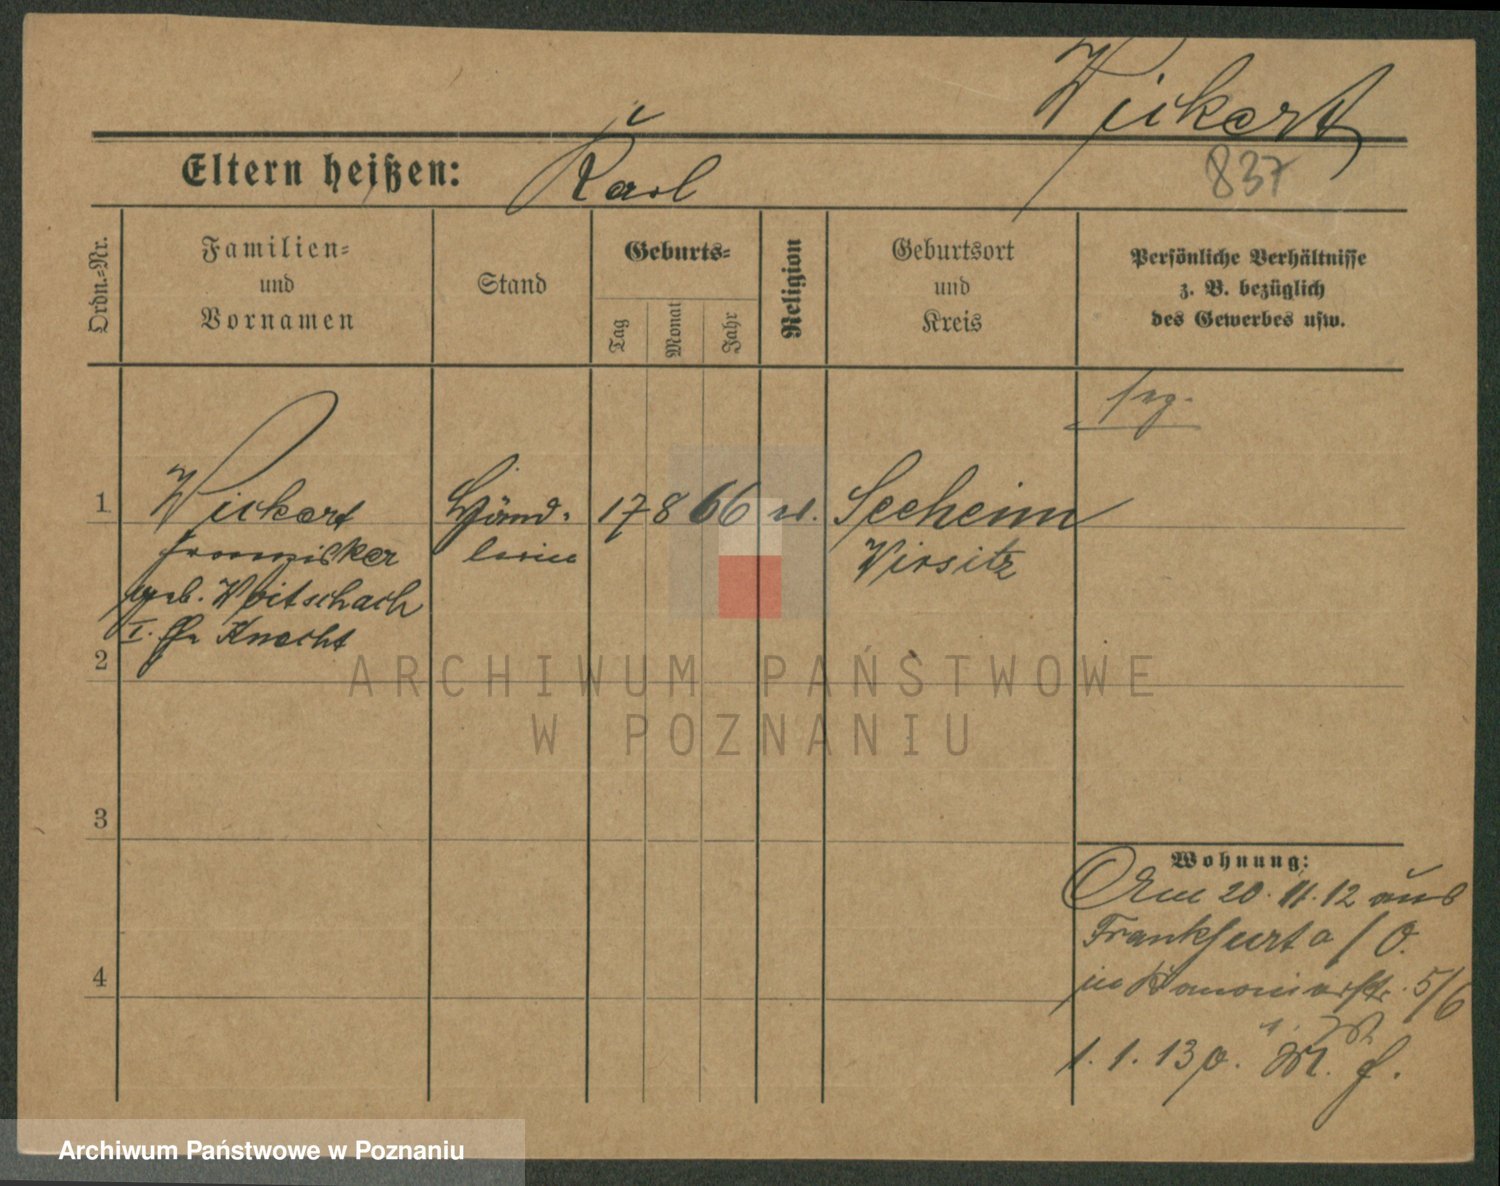 Wickert
Eltern heißen: Karl
837
Ordn.-Nr.
Familien-
und
Vornamen
Stand
Geburts-
Tag
Monat
Jahr
Religion
Geburtsort
und
Kreis
Persönliche Verhältnisse
z. B. bezüglich
des Gewerbes usw.
1 Wickert Händ- 17 8 66 Seeheim
Franzisker lerin Wirsitz
geb. Woitschach
I. Knecht
2
3
4
Wohnung:
Am 20. 11. 12 aus
Frankfurt a/O.
in Kanonierstr. 5/6
1. 1. 13
ARCHIWUM PAŃSTWOWE
W POZNANIU
Archiwum Państwowe w Poznaniu